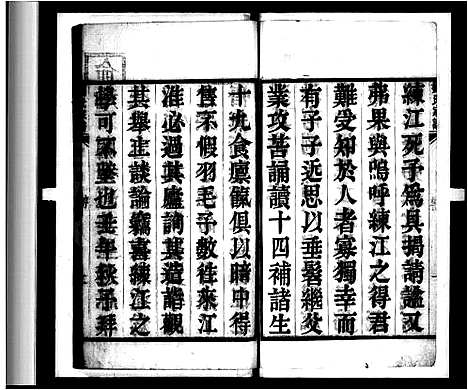 練江死予為具揭請謚又
弗果與嗚呼練江之得君
難受知於人者寡獨幸而
有子子远思以垂髫繼父
業攻苦誦讀十四補諸生
十九食廩餼俱以暗中得
售不假羽毛予數往來江
淮必過其廬訪其造詣觀
其舉止談論竊喜練江之
可
也